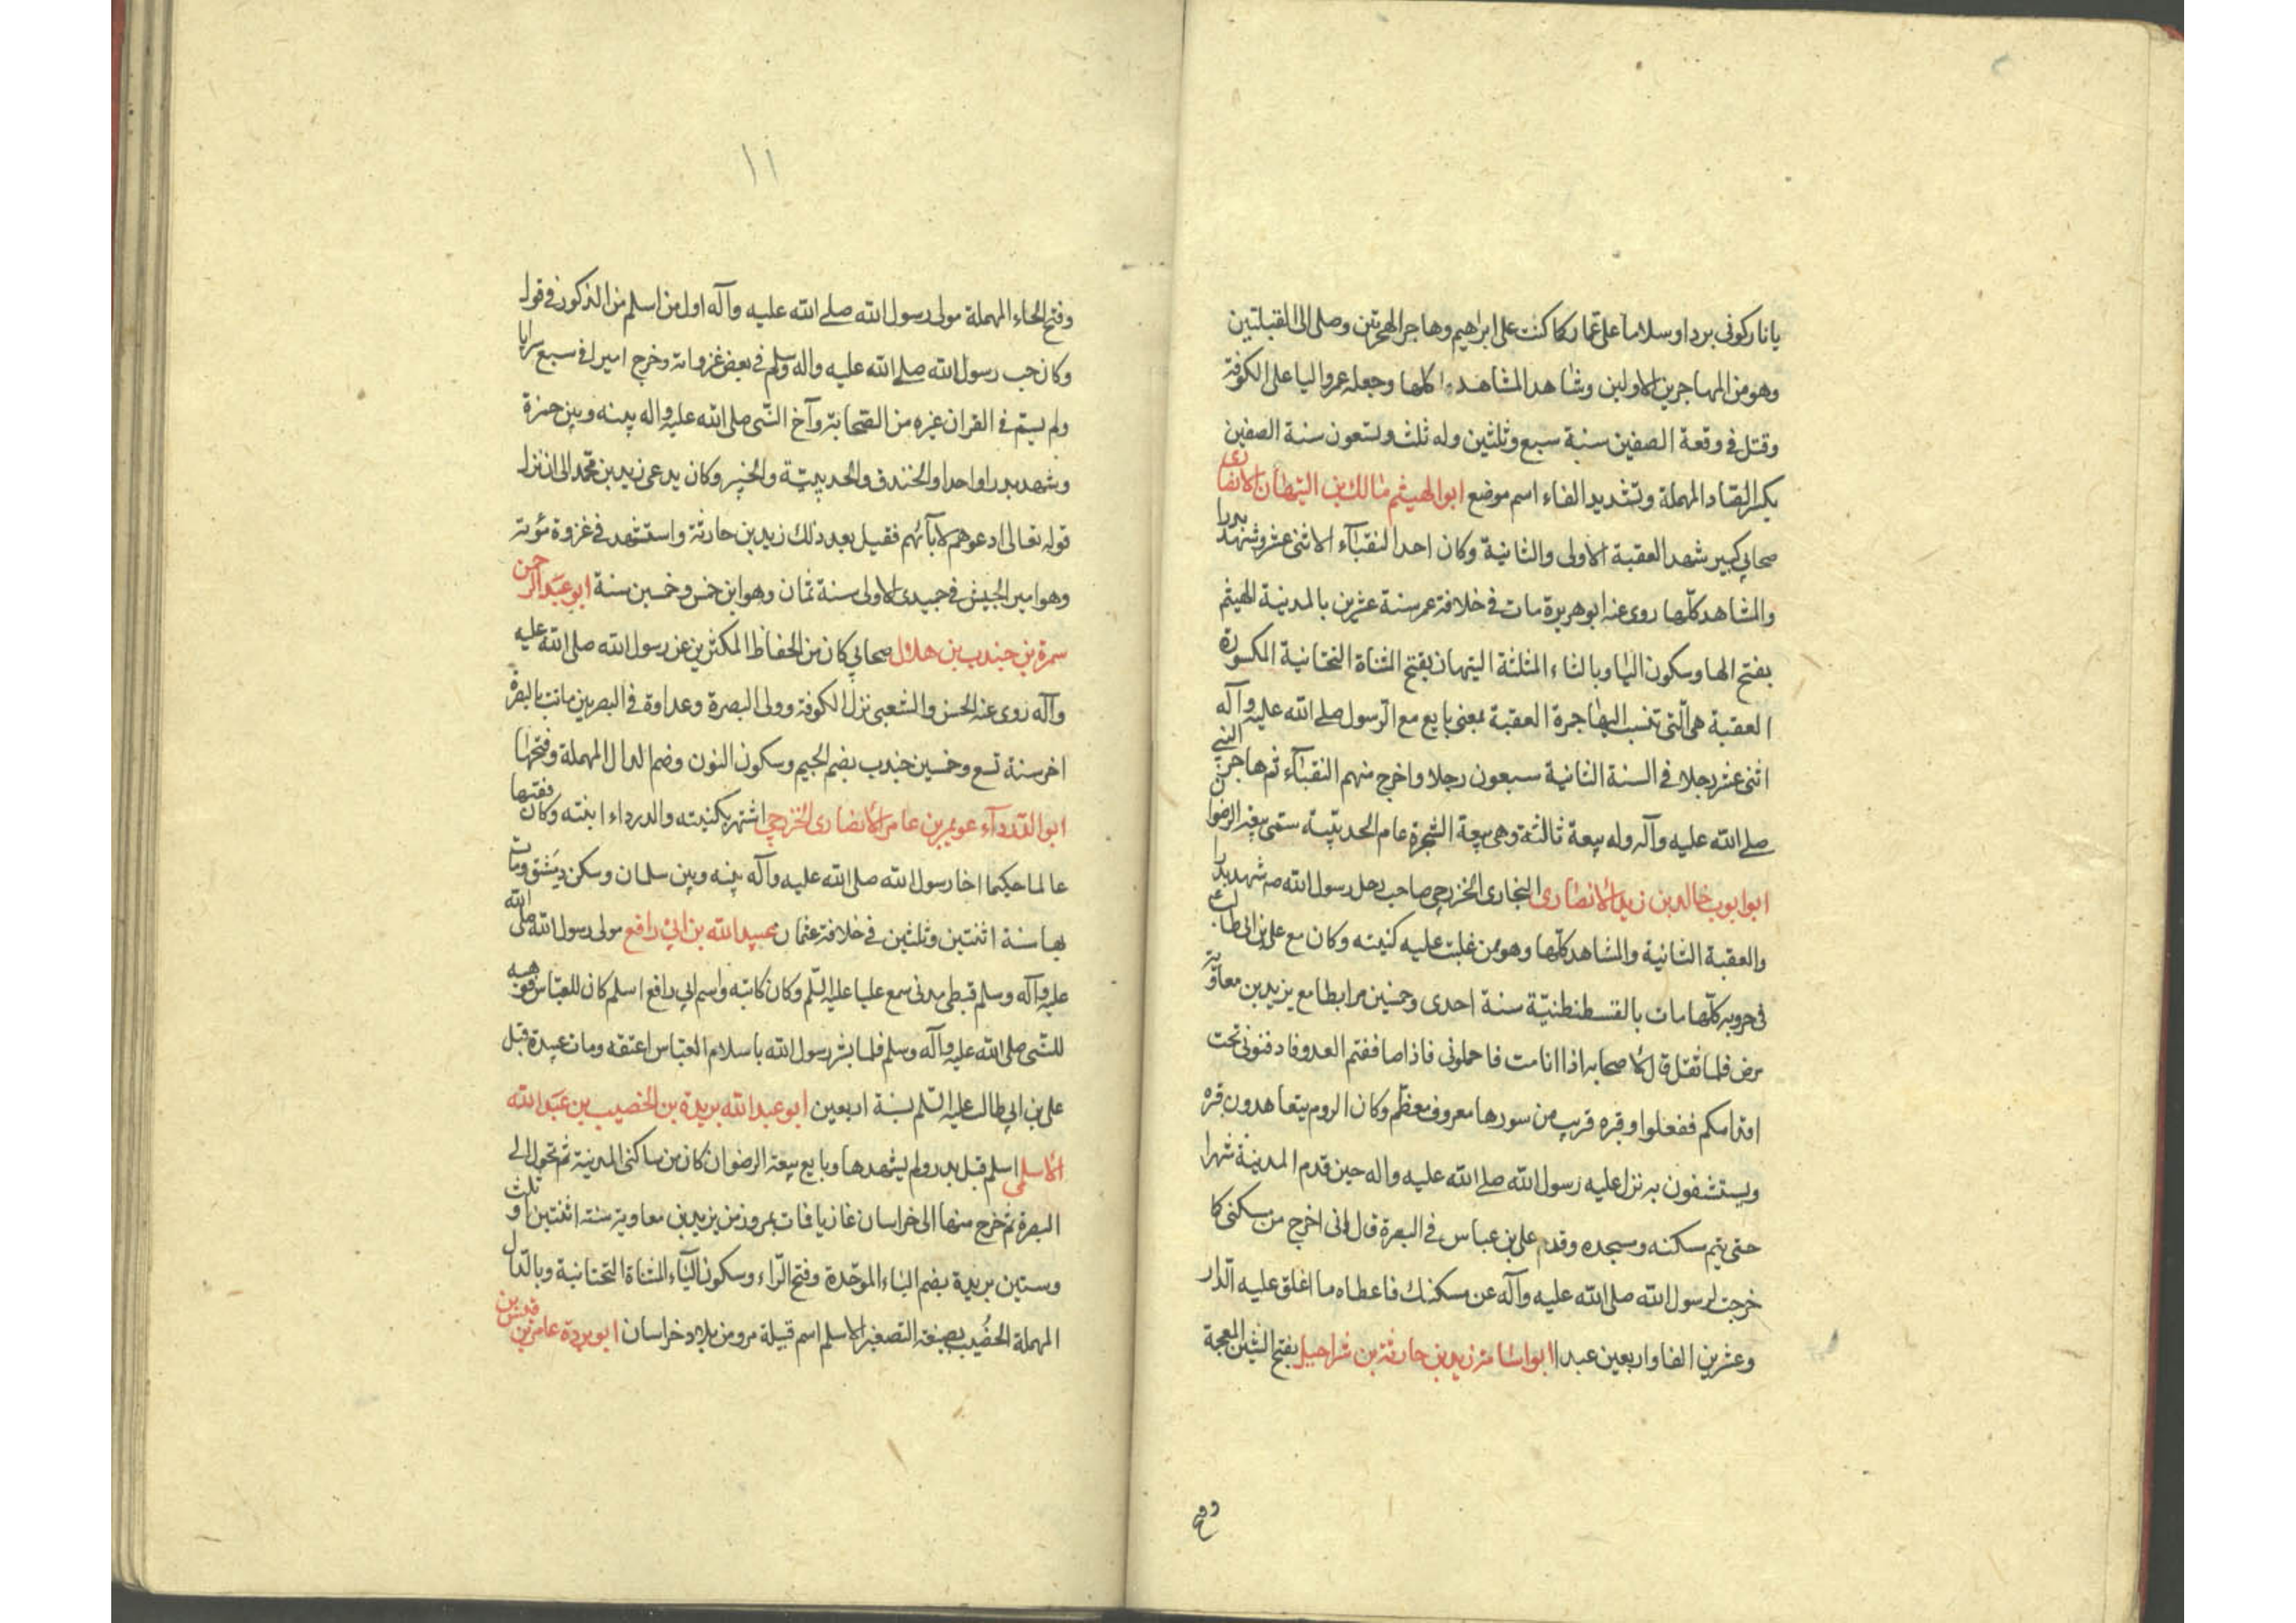 يا نار كونى بردا وسلاما على عمار كما كنت على ابراهيم وهاجر الهجرتين وصلى الى القبلتين
وهو من المهاجرين الاولين وشاهد المشاهد كلها وجعله عمر واليا على الكوفة
وقتل فى وقعة الصفين سنة سبع وثلثين وله ثلث وتسعون سنة الصفين
بكسر الصاد المهملة وتشديد الفاء اسم موضع ابو الهيثم مالك بن التيهان الانصارى
صحابي كبير شهد العقبة الاولى والثانية وكان احد النقبآء الاثنى عشر وشهد بدرا
والمشاهد كلها روى عنه ابو هريرة مات فى خلافة عمر سنة عشرين بالمدينة الهيثم
بفتح الها وسكون اليا وبالثاء المثلثة التيهان بفتح المثناة التحتانية المكسورة
العقبة هى الّتى تنسب اليها جمرة العقبة بمعنى بايع مع الرسول صلى الله عليه وآله
اثنى عشر رجلا فى السنة الثانية سبعون رجلا واخرج منهم النقبآء ثم هاجر النبى
صلى الله عليه وآله وله بيعة ثالثة وهى بيعة الشجرة عام الحديبية ستمى بيعة الرضوان
ابو ايوب خالد بن زيد الانصارى النجارى الخزرجى صاحب رحل رسول الله صه شهد بدرا
والعقبة الثانية والمشاهد كلّها وهو ممن غلبت عليه كنيته وكان مع على بن ابى طالب
فى حروبه كلّها مات بالقسطنطنيّة سنة احدى وخمسين مرابطا مع يزيد بن معاوية
مرض فلما ثقل قال لاصحابه اذا انا مت فاحملونى فاذا صاففتم العدو فادفنونى تحت
اقدامكم ففعلوا وقبره قريب من سورها معروف معظّم وكان الروم يتعاهدون قبره
ويستشفون به نزل عليه رسول الله صلى الله عليه واله حين قدم المدينة شهرا
حتى يتم مسكنه ومسجده وقدم على بن عباس فى البصرة قال انى اخرج من مسكنى كما
خرجت لرسول الله صلى الله عليه وآله عن مسكنك فاعطاه ما اغلق عليه الدار
وعشرين الفا واربعين عبدا ابو اسامة زيد بن حارثة بن شراحيل بفتح الشين المعجمة
وفتح
١١
وفتح الحاء المهملة مولى رسول الله صلى الله عليه وآله اول من اسلم من الذكور فى قول
وكان حب رسول الله صلى الله عليه واله وسلم فى بعض غزواته وخرج اميرا فى سبع سرايا
ولم يسمّ فى القران غيره من الصحابة وآخ النّبى صلى الله عليه واله بينه وبين حمزة
وشهد بدرا واحدا والخندق والحديبيّة والخيبر وكان يدعى زيد بن محمد الى ان نزل
قوله تعالى ادعوهم لابآئهم فقيل بعد ذلك زيد بن حارثة واستشهد فى غزوة مؤتة
وهو امير الجيش فى جميدى الاولى سنة ثمان وهو ابن خمس وخمسين سنة ابو عبد الرحمن
سمرة بن جندب بن هلال صحابي كان من الحفاظ المكثرين عن رسول الله صلى الله عليه
وآله روى عنه الحسن والشعبى نزل الكوفة وولى البصرة وعداوة فى البصريين مات بالبصرة
اخر سنة تسع وخمسين جندب بضم الجيم وسكون النون وضم الدال المهملة وفتحها
ابو الدردآء عويمر بن عامر الانصارى الخزرجى اشتهر بكنيته والدرداء ابنته وكان فقيها
عالما حكيما اخا رسول الله صلى الله عليه وآله بينه وبين سلمان وسكن دمشق ومات
بها سنة اثنتين وثلثين فى خلافة عثمان عبيد الله بن ابى رافع مولى رسول الله صلى الله
عليه وآله وسلم قبطى مدنى سمع عليا عليه السّلم وكان كاتبه واسم ابى رافع اسلم كان للعبّاس فوهبه
للنّبى صلى الله عليه وآله وسلم فلما بشر رسول الله باسلام العبّاس اعتقه ومات عبيدة قبل
على بن ابى طالب عليه السّلم بسنة اربعين ابو عبد الله بريدة بن الخصيب بن عبد الله
الاسلمى اسلم قبل بدر ولم يشهدها وبايع بيعة الرضوان كان من ساكنى المدينة ثم تحول الى
البصرة ثم خرج منها الى خراسان غازيا فات بمرو زمن يزيد بن معاوية سنة اثنتين او ثلث
وستين بريدة بضم الباء الموحّدة وفتح الرّاء وسكون اليآء المثناة التحتانية وبالدّال
المهملة الخضُيب بصيغة التصغير الاسلم اسم قبيلة مرو من بلاد خراسان ابو بردة عامر بن قيس بن